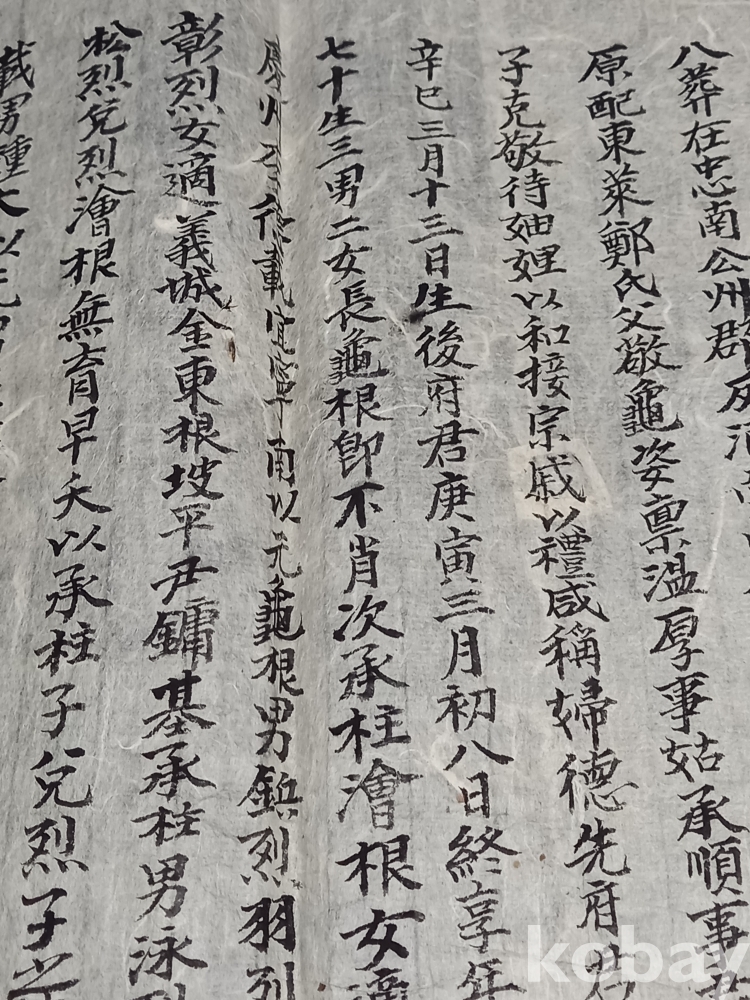 八葬在忠南公州郡
原配東萊鄭氏父敬龜姿稟溫厚事姑承順事
子克敬待妯娌以和接宗戚以禮咸稱婦德先府君
辛巳三月十三日生後府君庚寅三月初八日終享年
七十生三男二女長龜根卽不肖次承柱澮根女適
慶州 載宜寧南以元龜根男鎭烈羽烈
彰烈女適義城金東根坡平尹鏞基承柱男泳烈
松烈兌烈澮根無育早夭以承柱子兌烈子之
載男種大以
kobay